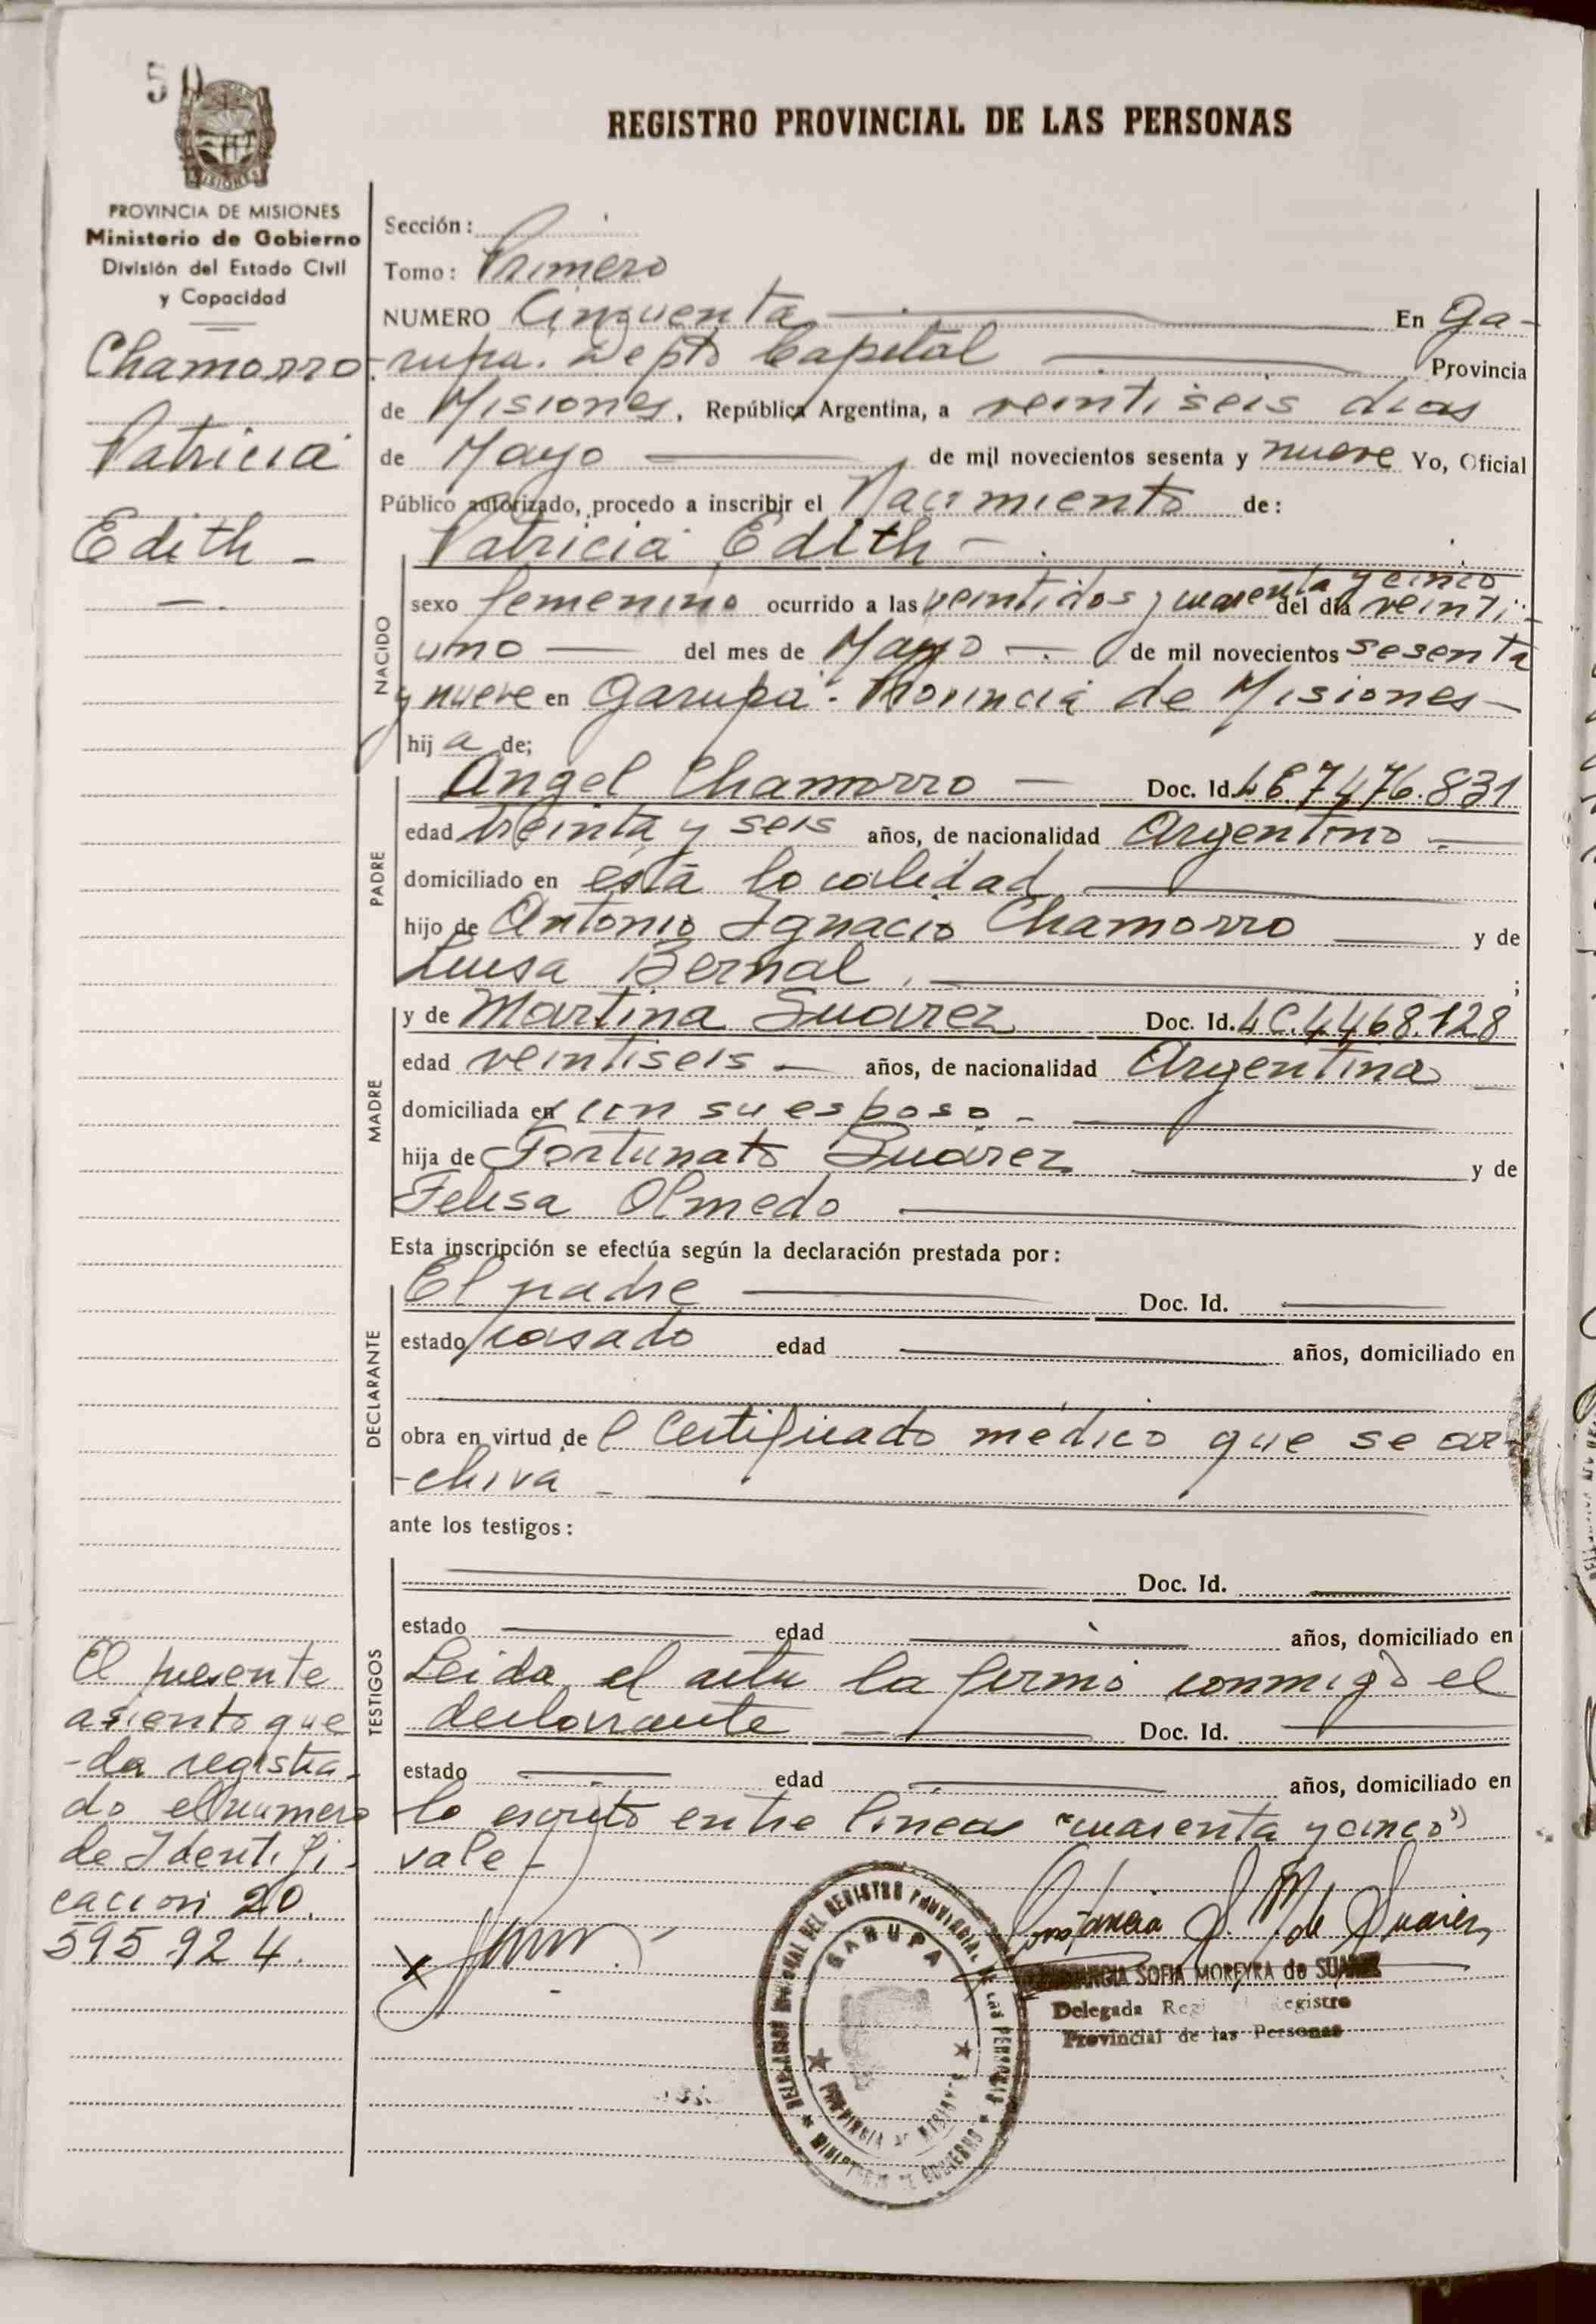 50
REGISTRO PROVINCIAL DE LAS PERSONAS
PROVINCIA DE MISIONES
Ministerio de Gobierno
División del Estado Civil
y Capacidad
Chamorro
Patricia
Edith —
Sección:
Tomo: Primero
NUMERO Cinquenta En Ga-
rupa. Depto Capital Provincia
de Misiones, República Argentina, a veintiseis dias
de Mayo de mil novecientos sesenta y nueve Yo, Oficial
Público autorizado, procedo a inscribir el Nacimiento de:
Patricia Edith —
NACIDO
sexo femenino ocurrido a las veintidos y cuarenta y cinco del día veinti-
uno — del mes de Mayo — de mil novecientos sesenta
y nueve en Garupa - Provincia de Misiones —
hij a de;
PADRE
Angel Chamorro — Doc. Id. LE. 7.476.831
edad treinta y seis años, de nacionalidad Argentino —
domiciliado en esta localidad
hijo de Antonio Ignacio Chamorro y de
Luisa Bernal ;
MADRE
y de Martina Suarez Doc. Id. LC. 4.468.128
edad veintiseis — años, de nacionalidad Argentina
domiciliada en con su esposo —
hija de Fortunato Suárez y de
Felisa Olmedo
Esta inscripción se efectúa según la declaración prestada por:
DECLARANTE
El padre Doc. Id.
estado casado edad años, domiciliado en
obra en virtud de l Certificado medico que se ar-
-chiva —
ante los testigos:
TESTIGOS
Doc. Id.
estado edad años, domiciliado en
Leida el acta la firmó conmigo el
declarante Doc. Id.
estado edad años, domiciliado en
lo escrito entre lineas "cuarenta y cinco"
vale —
El presente
asiento que
-da registra-
do el numero
de Identifi-
cacion 20.
595.924.
X
DELEGACION REGIONAL DEL REGISTRO PROVINCIAL DE LAS PERSONAS
GARUPA
PROVINCIA de MISIONES
MINISTERIO DE GOBIERNO
Constancia S. M. de Suarez
CONSTANCIA SOFIA MOREYRA de SUAREZ
Delegada Registro
Provincial de las Personas